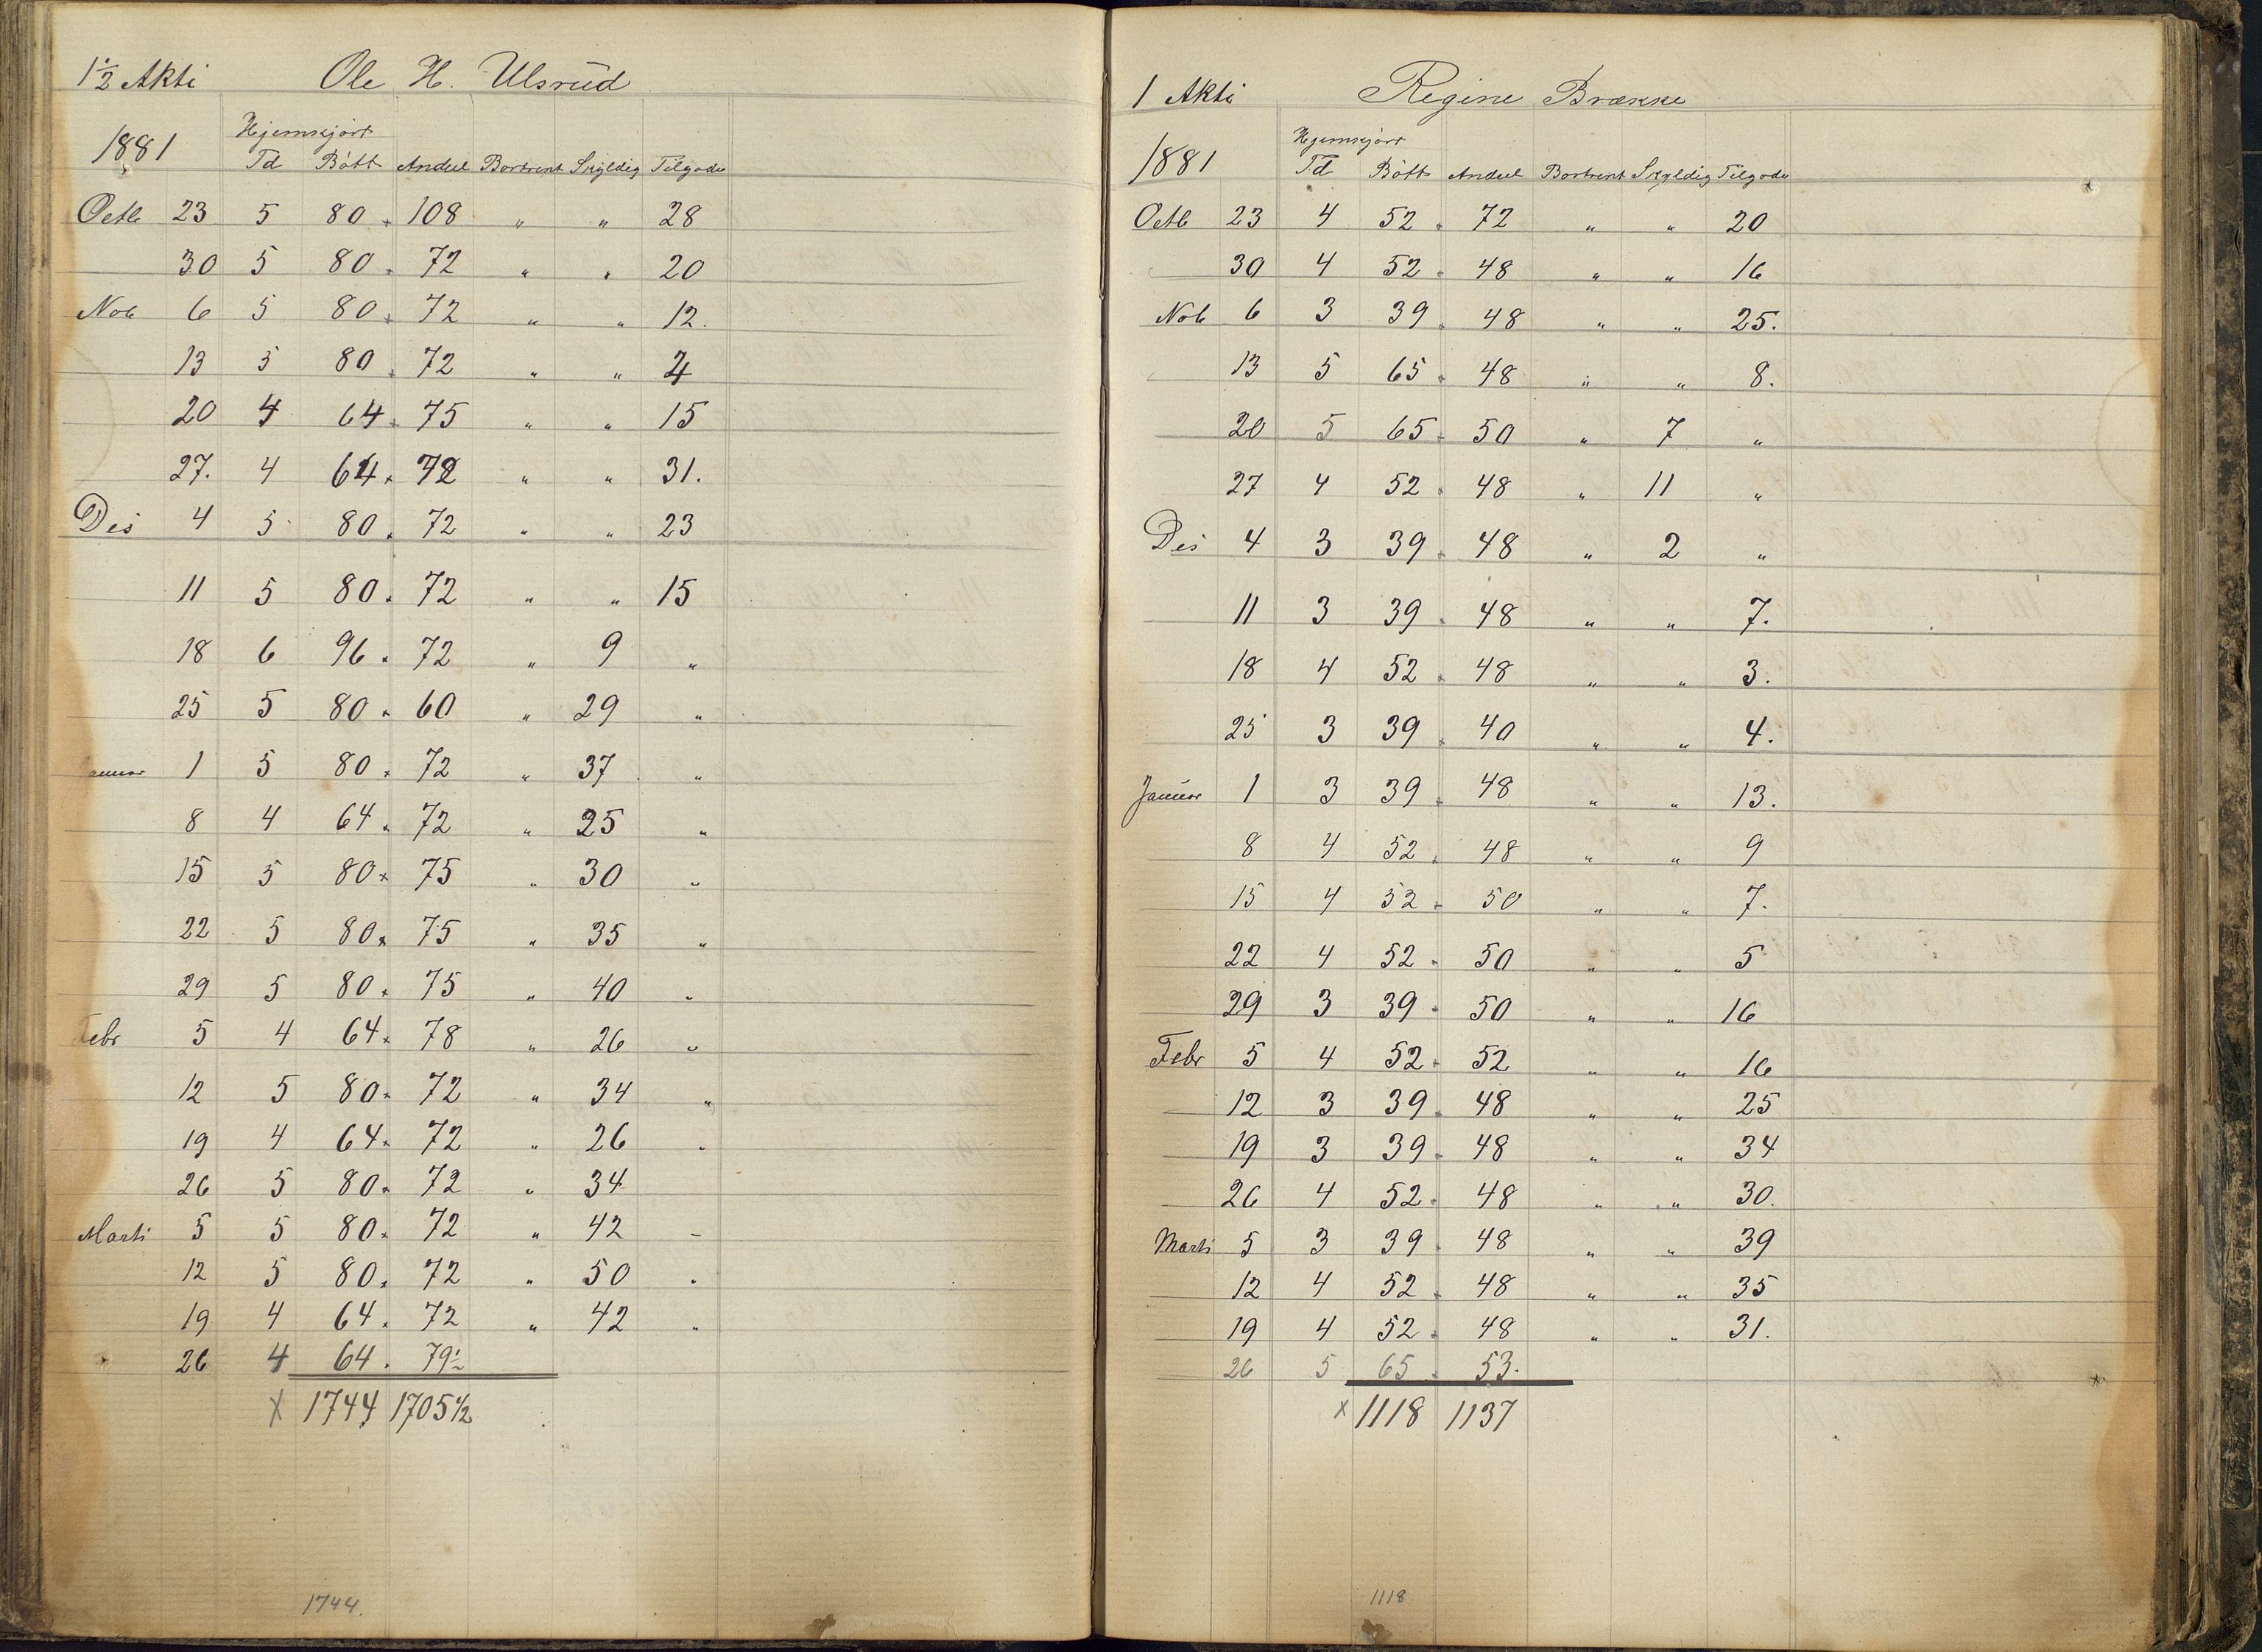 1½ Akti Ole H. Ulsrud
Hjemkjørt
1881 Td Bött Andeel Bortrent Skyldig Tilgode
Octb 23 5 80 . 108 " " 28
30 5 80 . 72 " " 20
Nob 6 5 80 . 72 " " 12.
13 5 80 . 72 " " 4
20 4 64 . 75 " " 15
27. 4 64 . 72 " " 31.
Des 4 5 80 . 72 " " 23
11 5 80 . 72 " " 15
18 6 96 . 72 " 9 "
25 5 80 . 60 " 29 "
anuar 1 5 80 . 72 " 37 "
8 4 64 . 72 " 25 "
15 5 80 . 75 " 30 "
22 5 80 . 75 " 35 "
29 5 80 . 75 " 40 "
Febr 5 4 64 . 78 " 26 "
12 5 80 . 72 " 34 "
19 4 64 . 72 " 26 "
26 5 80 . 72 " 34
Marti 5 5 80 . 72 " 42 "
12 5 80 . 72 " 50 "
19 4 64 . 72 " 42 "
26 4 64 . 79½
x 1744 1705½
1744.
1 Akti Regine Brække
Hjemkjørt
1881 Td Bött Andeel Bortrent Skyldig Tilgode
Octb 23 4 52 . 72 " " 20
30 4 52 . 48 " " 16
Nob 6 3 39 . 48 " " 25.
13 5 65 . 48 " " 8.
20 5 65 . 50 " 7 "
27 4 52 . 48 " 11 "
Des 4 3 39 . 48 " 2 "
11 3 39 . 48 " " 7.
18 4 52 . 48 " " 3.
25 3 39 . 40 " " 4.
Januar 1 3 39 . 48 " " 13.
8 4 52 . 48 " " 9
15 4 52 . 50 " " 7.
22 4 52 . 50 " " 5
29 3 39 . 50 " " 16
Febr 5 4 52 . 52 " " 16
12 3 39 . 48 " " 25
19 3 39 . 48 " " 34
26 4 52 . 48 " " 30.
Marti 5 3 39 . 48 " " 39
12 4 52 . 48 " " 35
19 4 52 . 48 " " 31.
26 5 65 . 53.
x 1118 1137
1118